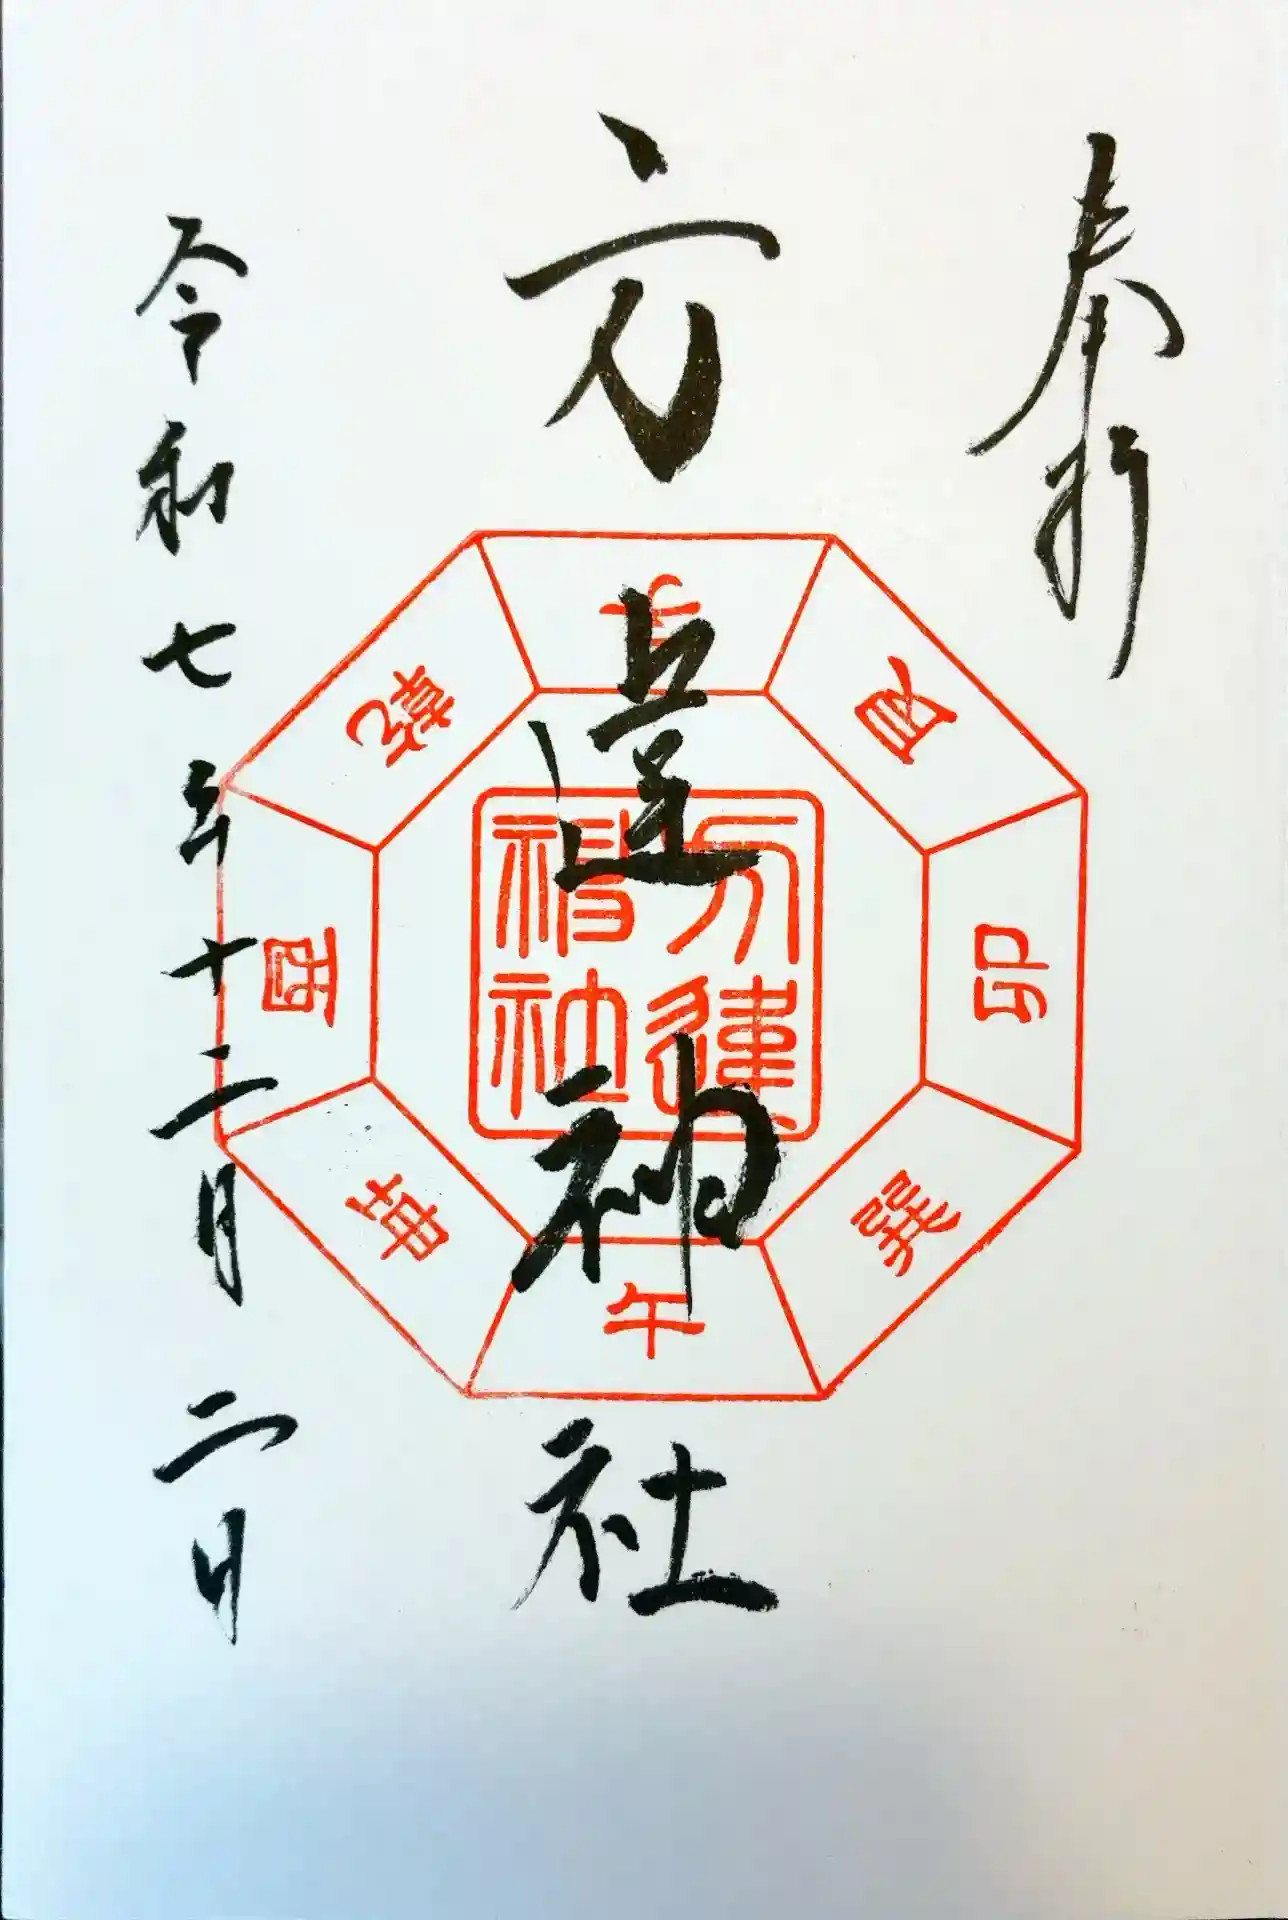 奉拝
方違神社
令和七年十二月二日
方違
神社
子
艮
卯
巽
午
坤
酉
乾